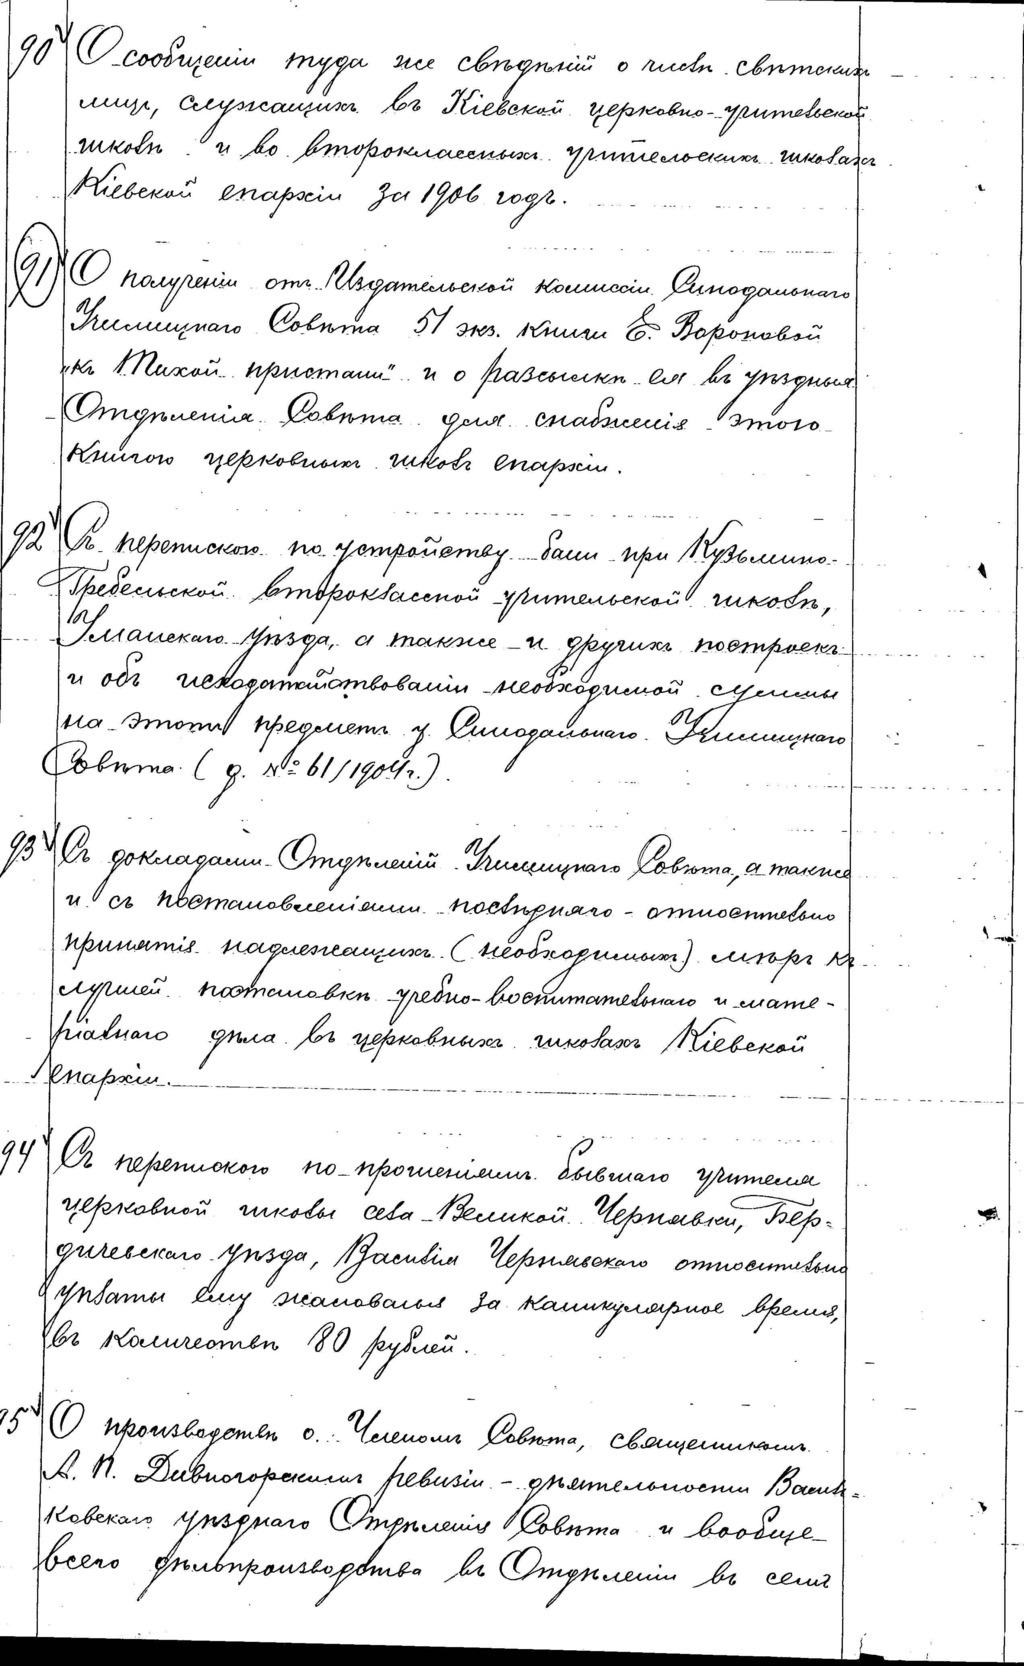 90 О сообщеніи туда же свѣдѣній о числѣ свѣтскихъ
лицъ, служащихъ въ Кіевской церковно-учительской
школѣ и во второклассныхъ учительскихъ школахъ
Кіевской епархіи за 1906 годъ.
91 О полученіи отъ Издательской коммиссіи Синодальнаго
Училищнаго Совѣта 51 экз. книги Е. Вороновой
„къ Тихой пристани" и о разсылкѣ ея въ уѣздныя
Отдѣленія Совѣта для снабженія этого
книгою церковныхъ школъ епархіи.
92 Съ перепискою по устройству бани при Кузьмино-
Гребельской второклассной учительской школѣ,
Уманскаго уѣзда, а также и другихъ построекъ
и объ исходатайствованіи необходимой суммы
на этотъ предметъ у Синодальнаго Училищнаго
Совѣта (д. № 61/1904 г.).
93 Съ докладами Отдѣленій Училищнаго Совѣта, а также
и съ постановленіями послѣдняго - относительно
принятія надлежащихъ (необходимыхъ) мѣръ къ
лучшей постановкѣ учебно-воспитательнаго и мате-
ріальнаго дѣла въ церковныхъ школахъ Кіевской
епархіи.
94 Съ перепискою по прошеніямъ бывшаго учителя
церковной школы села Великой Чернявки, Бер-
дичевскаго уѣзда, Василія Чернявскаго относительно
уплаты ему жалованья за каникулярное время,
въ количествѣ 80 рублей.
95 О производствѣ о. Членомъ Совѣта, священникомъ
А. П. Дивногорскимъ ревизіи - дѣятельности Василь-
ковскаго уѣзднаго Отдѣленія Совѣта и вообще
всего дѣлопроизводства въ Отдѣленіи въ семъ